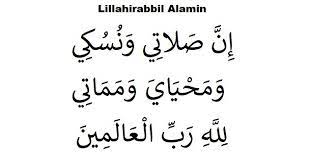 Lillahirabbil Alamin
إِنَّ صَلَاتِي وَنُسُكِي
وَمَحْيَايَ وَمَمَاتِي
لِلَّهِ رَبِّ الْعَالَمِينَ